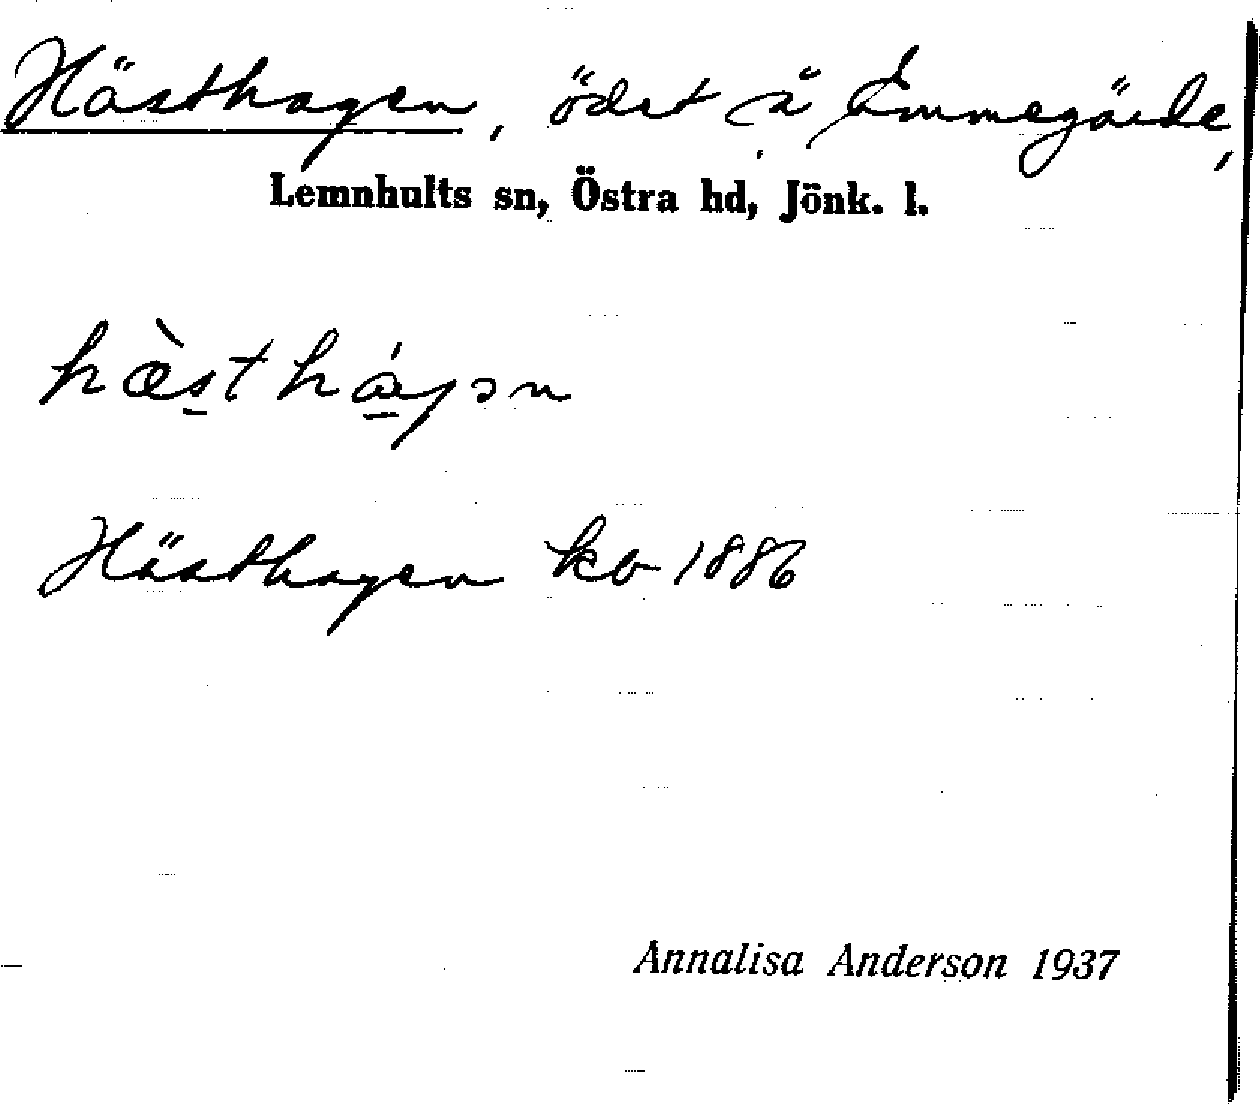 Hästhagen, ödet å Emmegärde,
Lemnhults sn, Östra hd, Jönk. l.
hæ̀stháɡən
Hästhagen kb 1886
Annalisa Anderson 1937